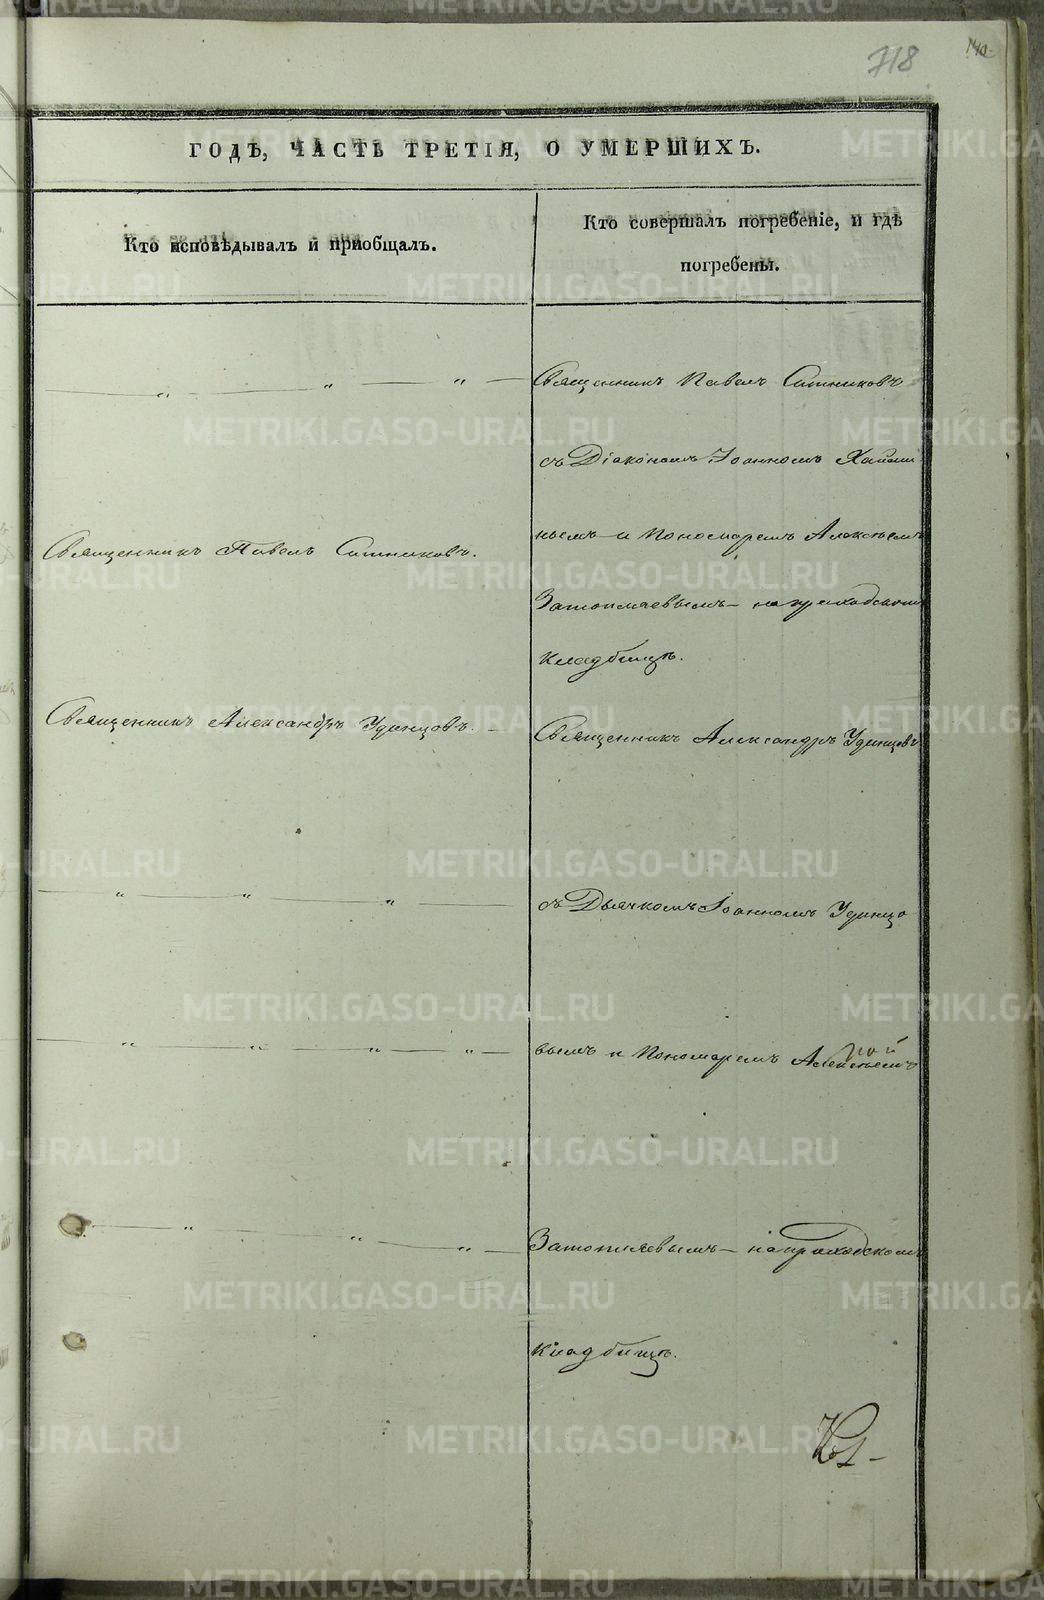 718
ГОДѢ, ЧАСТЬ ТРЕТІЯ, О УМЕРШИХЪ.
Кто исповѣдывалъ и пріобщалъ.
Кто совершалъ погребеніе, и гдѣ
погребены.
Священникъ Павелъ Ситниковъ
съ Діакономъ Іоанномъ
Священникъ Павелъ Ситниковъ.
и Пономаремъ Алексѣемъ
Затопляевымъ – на приходскомъ
кладбищѣ.
Священникъ Александръ Удинцовъ. –
Священникъ Александръ Удинцовъ
съ Дьячкомъ Іоанномъ Удинцо
вымъ и Пономаремъ Алексѣемъ
Затопляевымъ – на приходскомъ
кладбищѣ.
METRIKI.GASO-URAL.RU